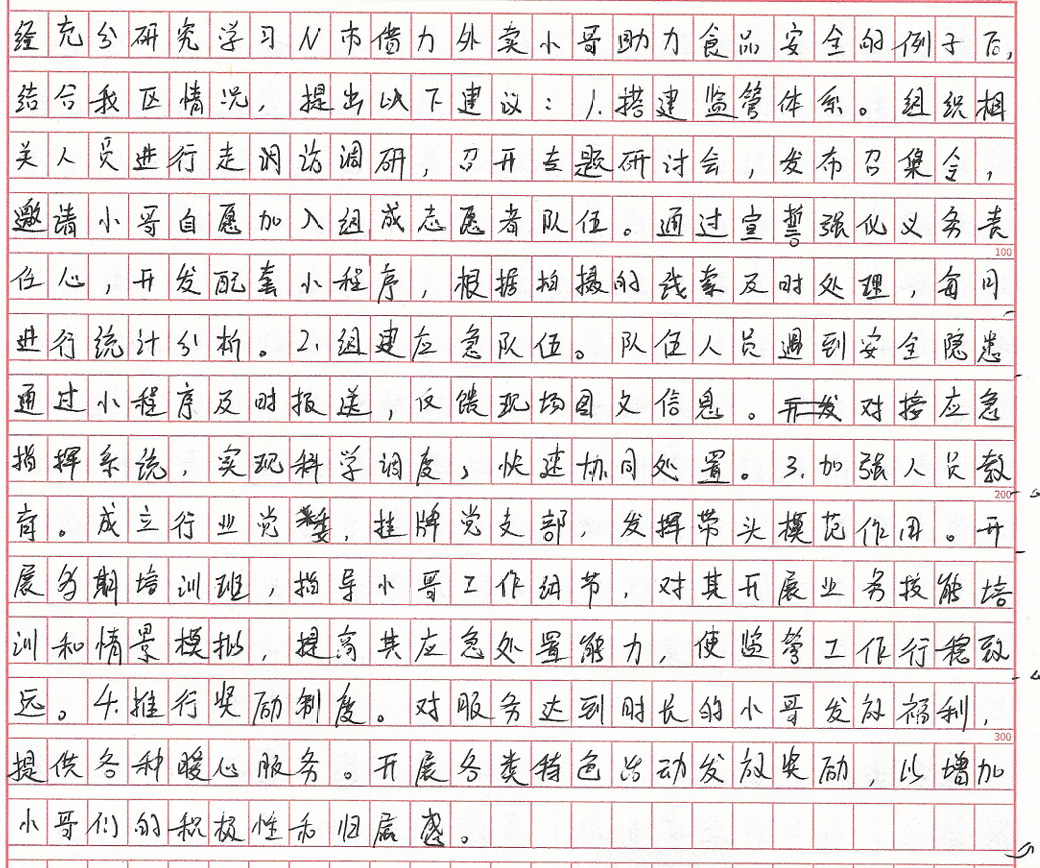 经充分研究学习N市借力外卖小哥助力食品安全的例子后,
结合我区情况,提出以下建议:1.搭建监管体系。组织相
关人员进行走润访调研,召开专题研讨会,发布召集令,
邀请小哥自愿加入组成志愿者队伍。通过宣誓强化义务责
100
任心,开发配套小程序,根据拍摄的线索及时处理,每月
进行统计分析。2.组建应急队伍。队伍人员遇到安全隐患
通过小程序及时报送,反馈现场图文信息。开发对接应急
指挥系统,实现科学调度,快速协同处置。3.加强人员教
200
育。成立行业党委,挂牌党支部,发挥带头模范作用。开
展多期培训班,指导小哥工作细节,对其开展业务技能培
训和情景模拟,提高其应急处置能力,使监管工作行稳致
远。4.推行奖励制度。对服务达到时长的小哥发放福利,
300
提供各种暖心服务。开展各类特色活动发放奖励,以增加
小哥们的积极性和归属感。